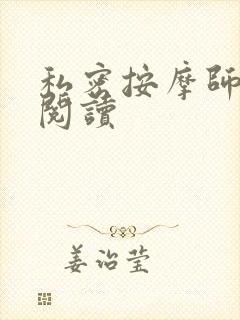 私密按摩師
閱讀
姜治莹